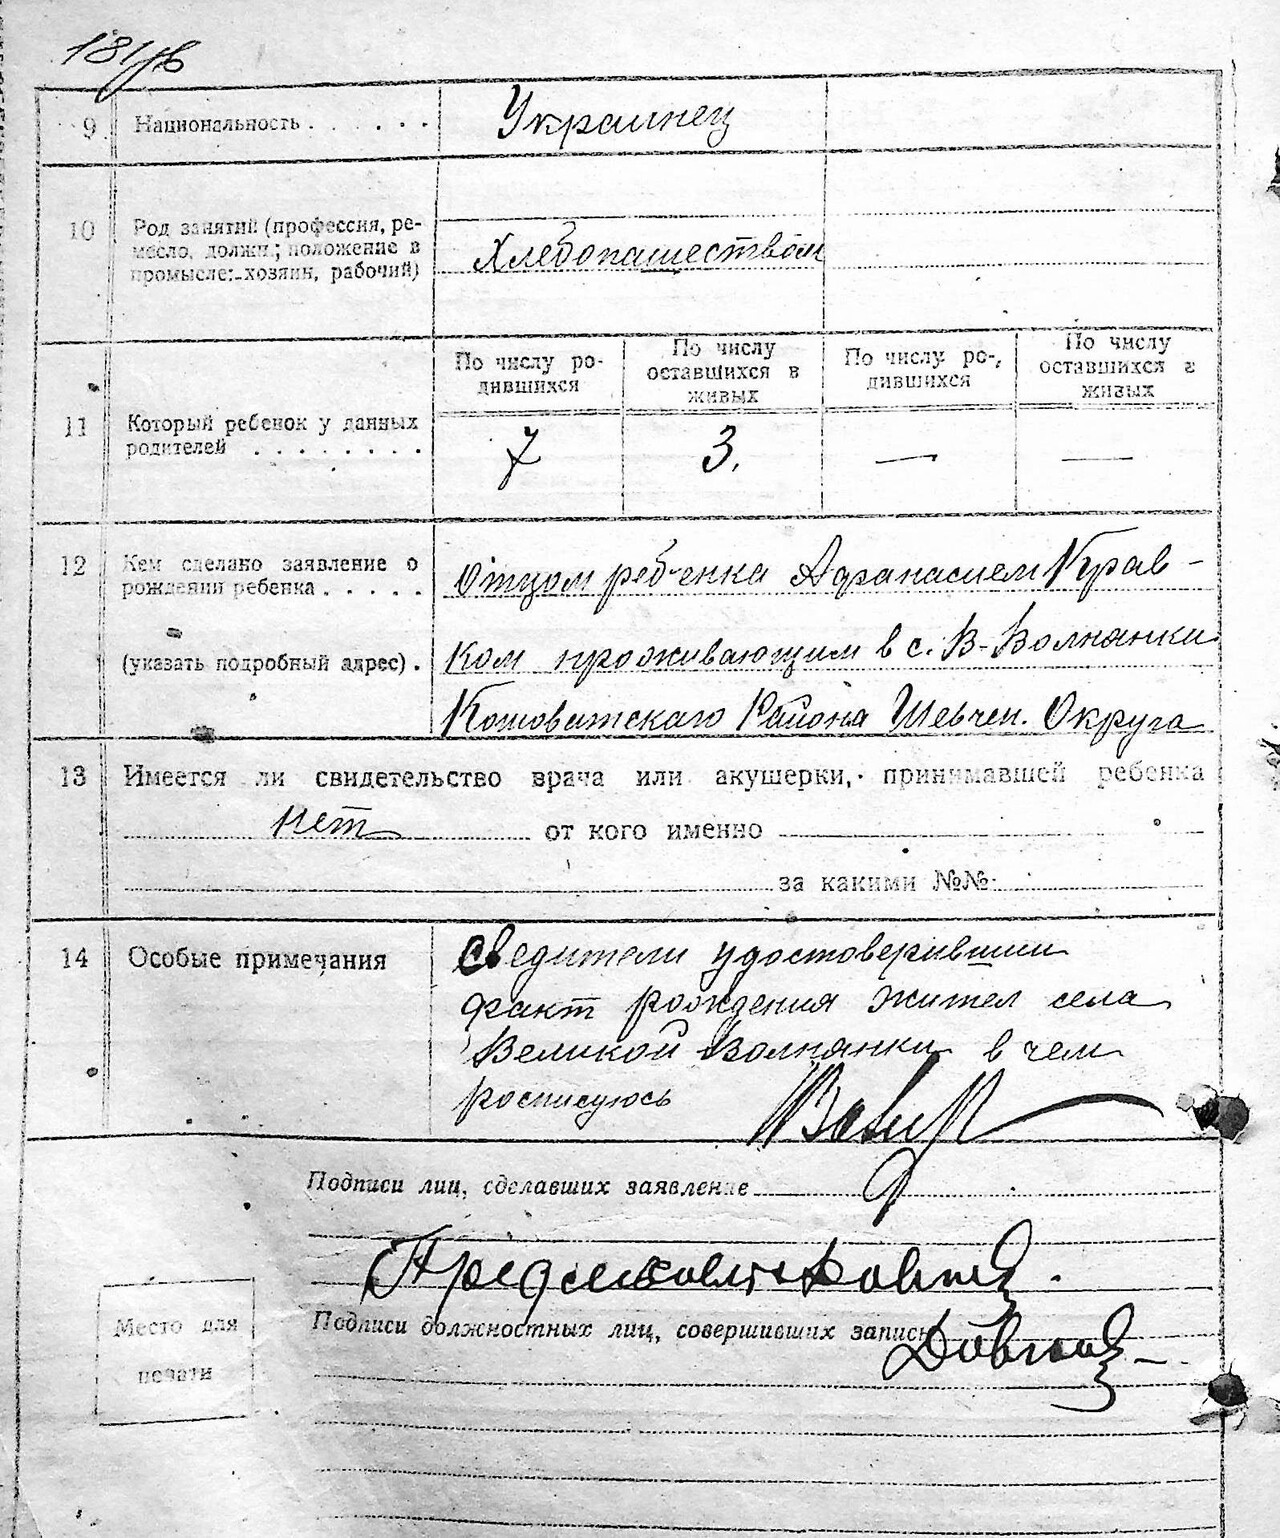 181
9 Национальность . . . . . . Украинец
10 Род занятий (профессия, ре-
месло, должн.; положение в
промысле: хозяин, рабочий)
Хлебопашеством
По числу ро-
дившихся
По числу
оставшихся в
живых
По числу ро-
дившихся
По числу
оставшихся в
живых
11 Который ребенок у данных
родителей . . . . . . . .
7 3. — —
12 Кем сделано заявление о
рождении ребенка . . . . .
(указать подробный адрес) .
Отцом ребенка Афанасием Крав-
ком проживающим в с. В-Волнянки
Кошоватскаго Района Шевчен. Округа
13 Имеется ли свидетельство врача или акушерки, принимавшей ребенка
нет от кого именно
за какими №№
14 Особые примечания
Сведители удостоверившии
факт рождения жител села
Великой Волнянки в чем
росписуюсь
Подписи лиц, сделавших заявление
Подписи должностных лиц, совершивших запись
Место для
печати